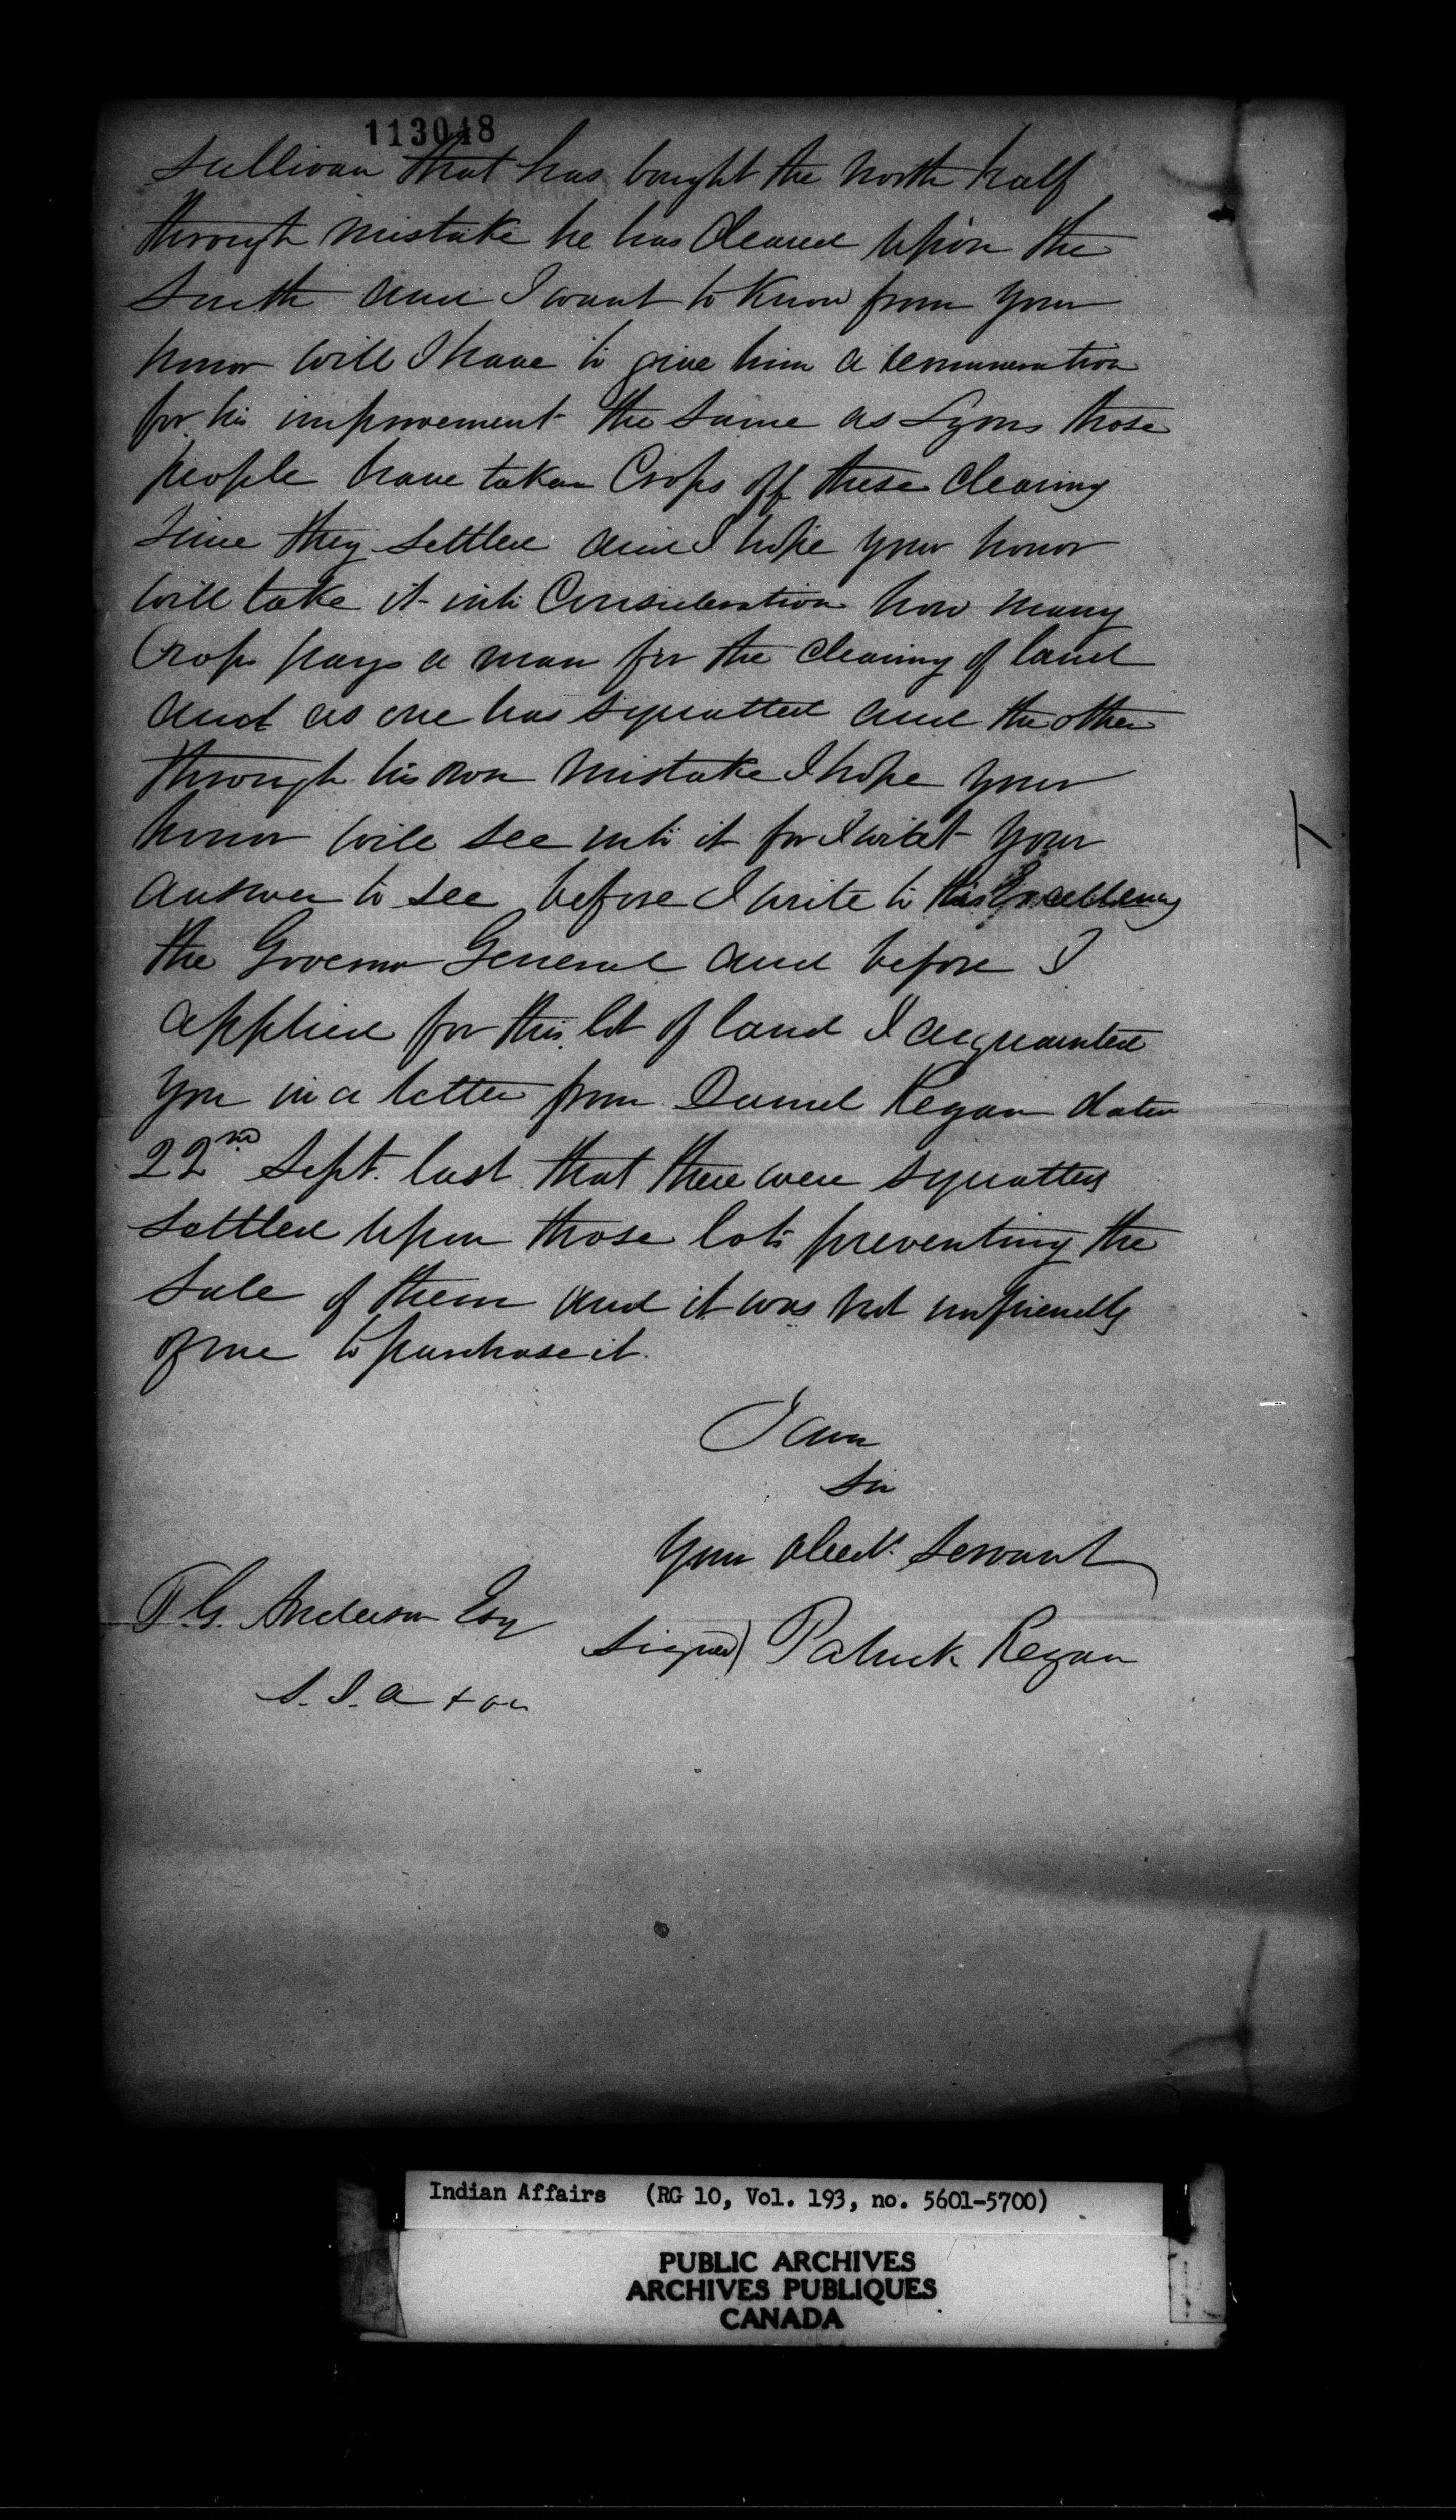 113048
Sullivan that has bought the North half
through mistake he has Cleared upon the
South and I want to Know from your
honor will I have to give him a remuneration
for his improvement the same as Lyons those
people have taken Crops off these clearing
since they settled and I hope your honor
will take it into Consideration how many
Crops pays a man for the clearing of land
and as one has squatted and the other
through his own mistake I hope your
honor will see into it for I wait your
answer to see before I write to His Excellency
the Governor General and before I
applied for this lot of land I acquainted
you in a letter from Daniel Regan dated
22nd Sept. last that there were squatters
settled upon those lots preventing the
sale of them and it was not unfriendly
of me to purchase it.
I am
Sir
Your obedt. Servant
T. G. Anderson Esq
Signed) Patrick Regan
S. I. A
Indian Affairs (RG 10, Vol. 193, no. 5601-5700)
PUBLIC ARCHIVES
ARCHIVES PUBLIQUES
CANADA